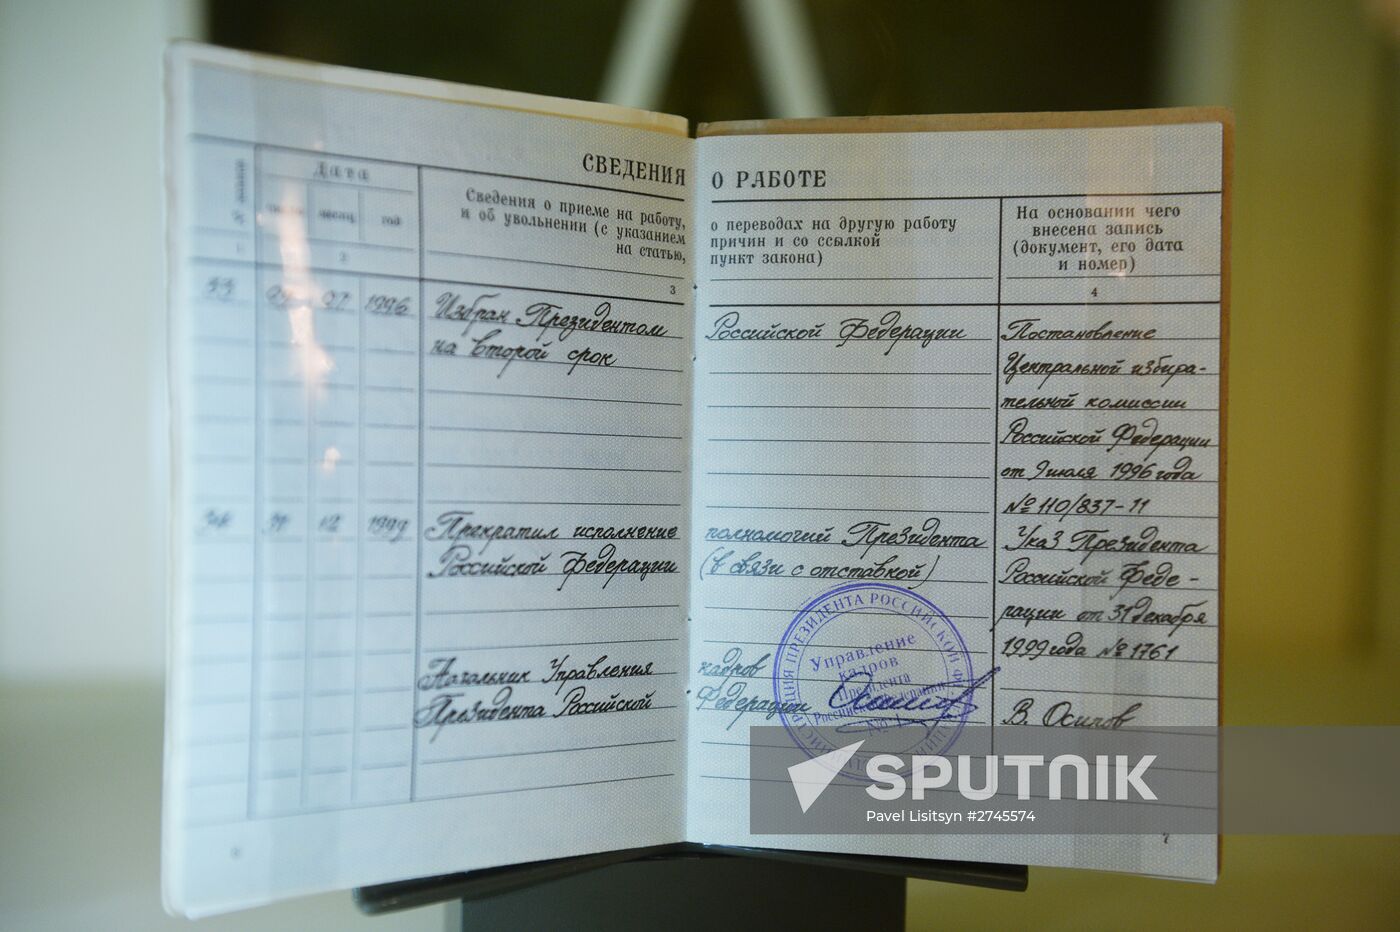 СВЕДЕНИЯ О РАБОТЕ
Дата
месяц
год
Сведения о приеме на работу,
и об увольнении (с указанием
на статью,
о переводах на другую работу
причин и со ссылкой
пункт закона)
На основании чего
внесена запись
(документ, его дата
и номер)
1
2
3
4
33 07 1996 Избран Президентом Российской Федерации
на второй срок
Постановление
Центральной избира-
тельной комиссии
Российской Федерации
от 9 июля 1996 года
№ 110/837-11
34 31 12 1999 Прекратил исполнение полномочий Президента
Российской Федерации (в связи с отставкой)
Указ Президента
Российской Феде-
рации от 31 декабря
1999 года № 1761
Начальник Управления кадров
Президента Российской Федерации
В. Осипов
ПРЕЗИДЕНТА РОССИЙСКОЙ
Управление
кадров
Президента
Российской Федерации
№ 1
6
7
SPUTNIK
Pavel Lisitsyn #2745574